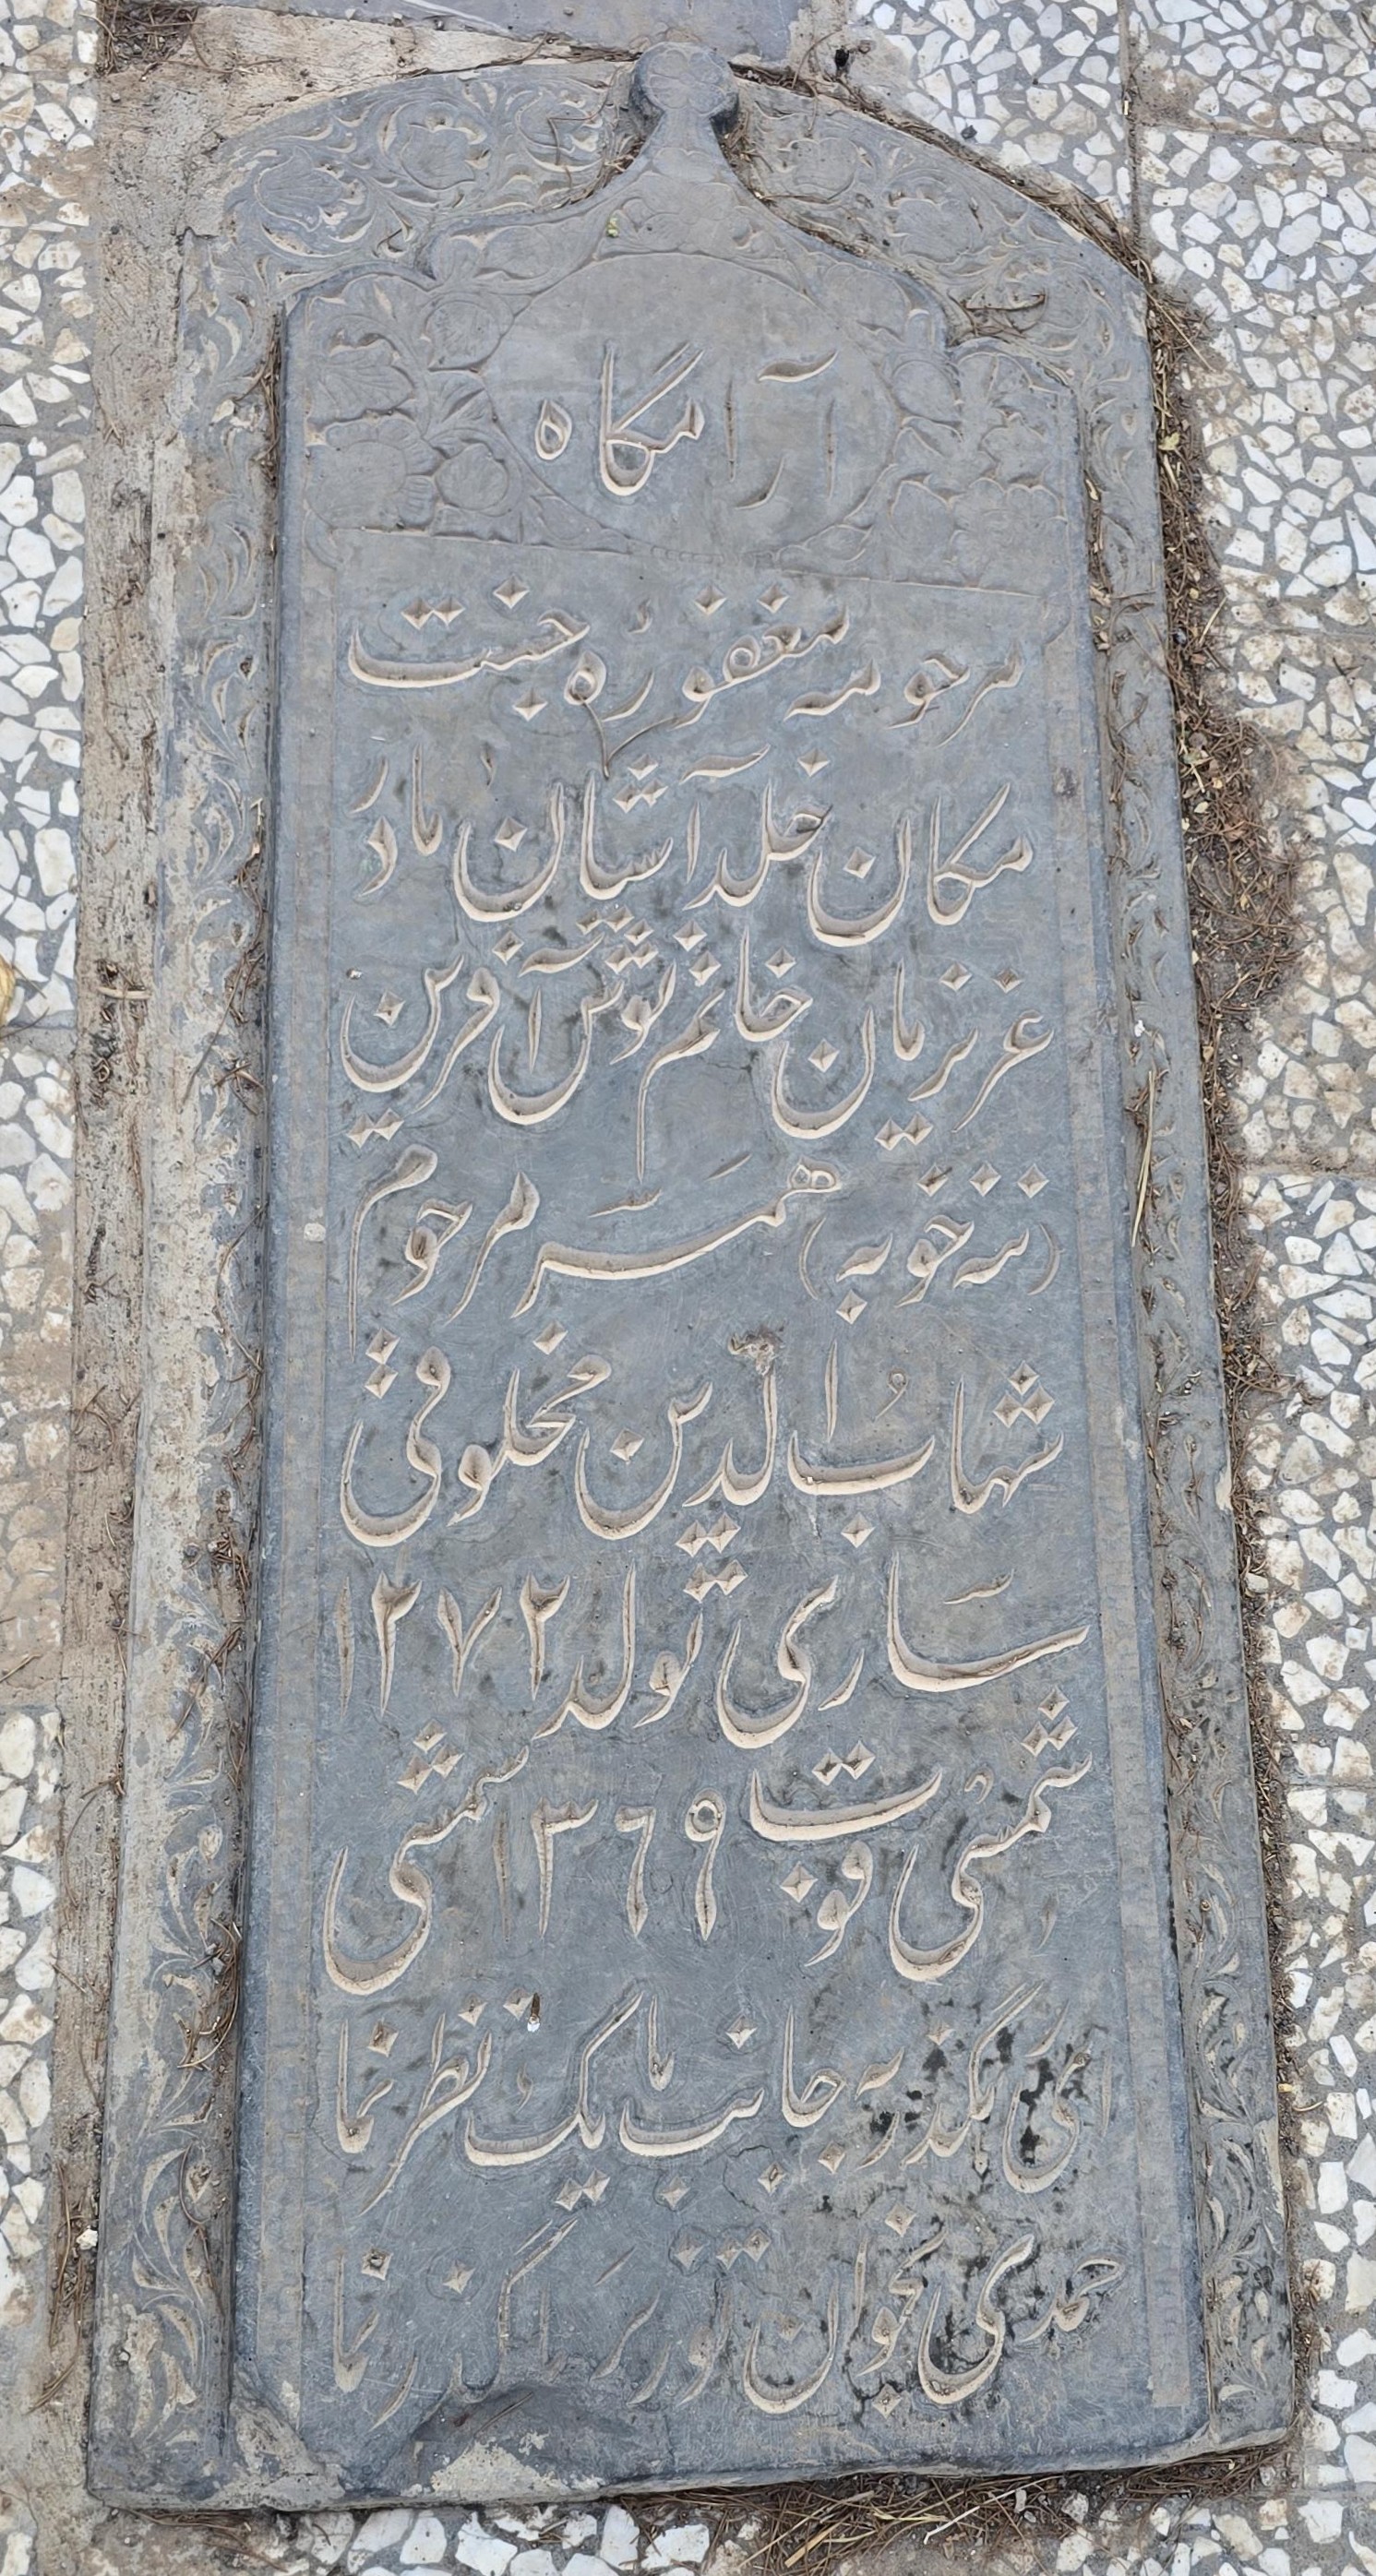 آرامگاه
مرحومه مغفوره جنت
مکان خلد آشیان مادر
عزیزمان خانم نوش آفرین
(ننه خوبه) همسر مرحوم
شهاب الدین مخلوقی
ساری تولد ۱۲۷۲
شمسی فوت ۱۳۶۹ شمسی
ای بگذر به جانب ما یک نظر نما
حمدی بخوان تو بر ما گذر نما